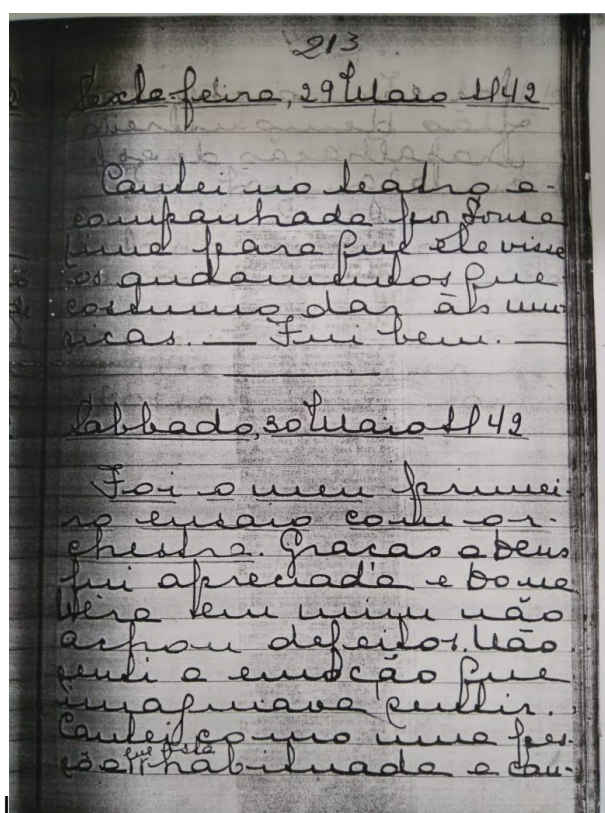 213
Sexta-feira, 29 Maio 1942
Cantei no teatro a-
companhada por Sousa
Lima para que ele visse
os andamentos que
costumo dar às mu-
sicas. — Fui bem. —
Sabbado, 30 Maio 1942
Foi o meu primei-
ro ensaio com or-
chestra. Graças a Deus
fui apreciada e
em mim não
achou defeitos. Não
senti a emoção que
imaginava sentir.
Cantei como uma pes-
que está
sôa habituada a can-